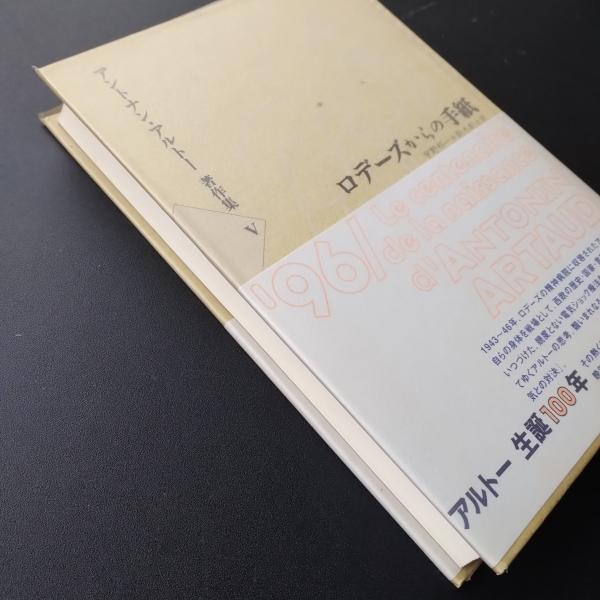 アントナン・アルトー 著作集 V
ロデーズからの手紙
'96/ Le centenaire
de la naissance
d'ANTONIN
ARTAUD
1943〜46年、ロデーズの精神病院に収容された
自らの身体を戦場として、西欧の歴史・国家・
いつづけた。間度とない電気ショック療法
てゆくアルトーの思考、類いまれな
気との対決」。
アルトー 生誕100年
その熱く